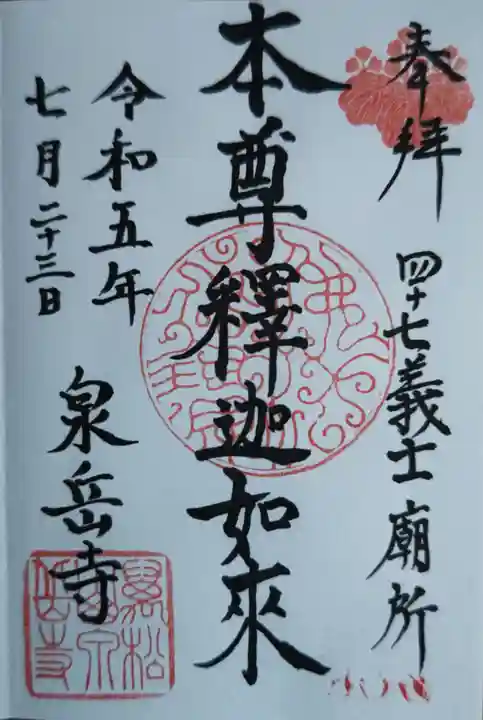 奉拝
四十七義士廟所
本尊釋迦如來
令和五年
七月二十三日
泉岳寺
萬松山泉岳寺